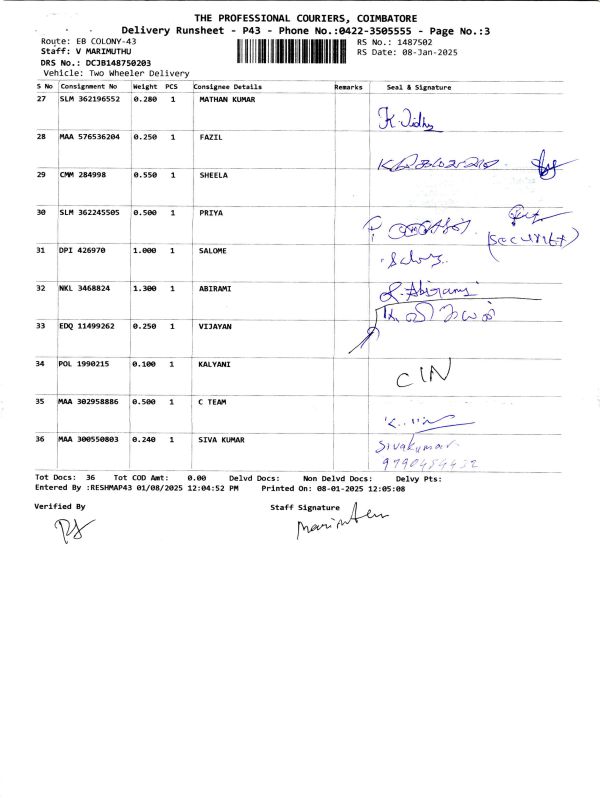 THE PROFESSIONAL COURIERS, COIMBATORE
Delivery Runsheet - P43 - Phone No.:0422-3505555 - Page No.:3
Route: EB COLONY-43 RS No.: 1487502
Staff: V MARIMUTHU RS Date: 08-Jan-2025
DRS No.: DCJB148750203
Vehicle: Two Wheeler Delivery
S No Consignment No Weight PCS Consignee Details Remarks Seal & Signature
27 SLM 362196552 0.280 1 MATHAN KUMAR
28 MAA 576536204 0.250 1 FAZIL
29 CMM 284998 0.550 1 SHEELA
30 SLM 362245505 0.500 1 PRIYA
(SECURITY)
31 DPI 426970 1.000 1 SALOME
32 NKL 3468824 1.300 1 ABIRAMI Abirami
33 EDQ 11499262 0.250 1 VIJAYAN
34 POL 1990215 0.100 1 KALYANI CIN
35 MAA 302958886 0.500 1 C TEAM
36 MAA 300550803 0.240 1 SIVA KUMAR Sivakumar
Tot Docs: 36 Tot COD Amt: 0.00 Delvd Docs: Non Delvd Docs: Delvy Pts:
Entered By :RESHMAP43 01/08/2025 12:04:52 PM Printed On: 08-01-2025 12:05:08
Verified By Staff Signature